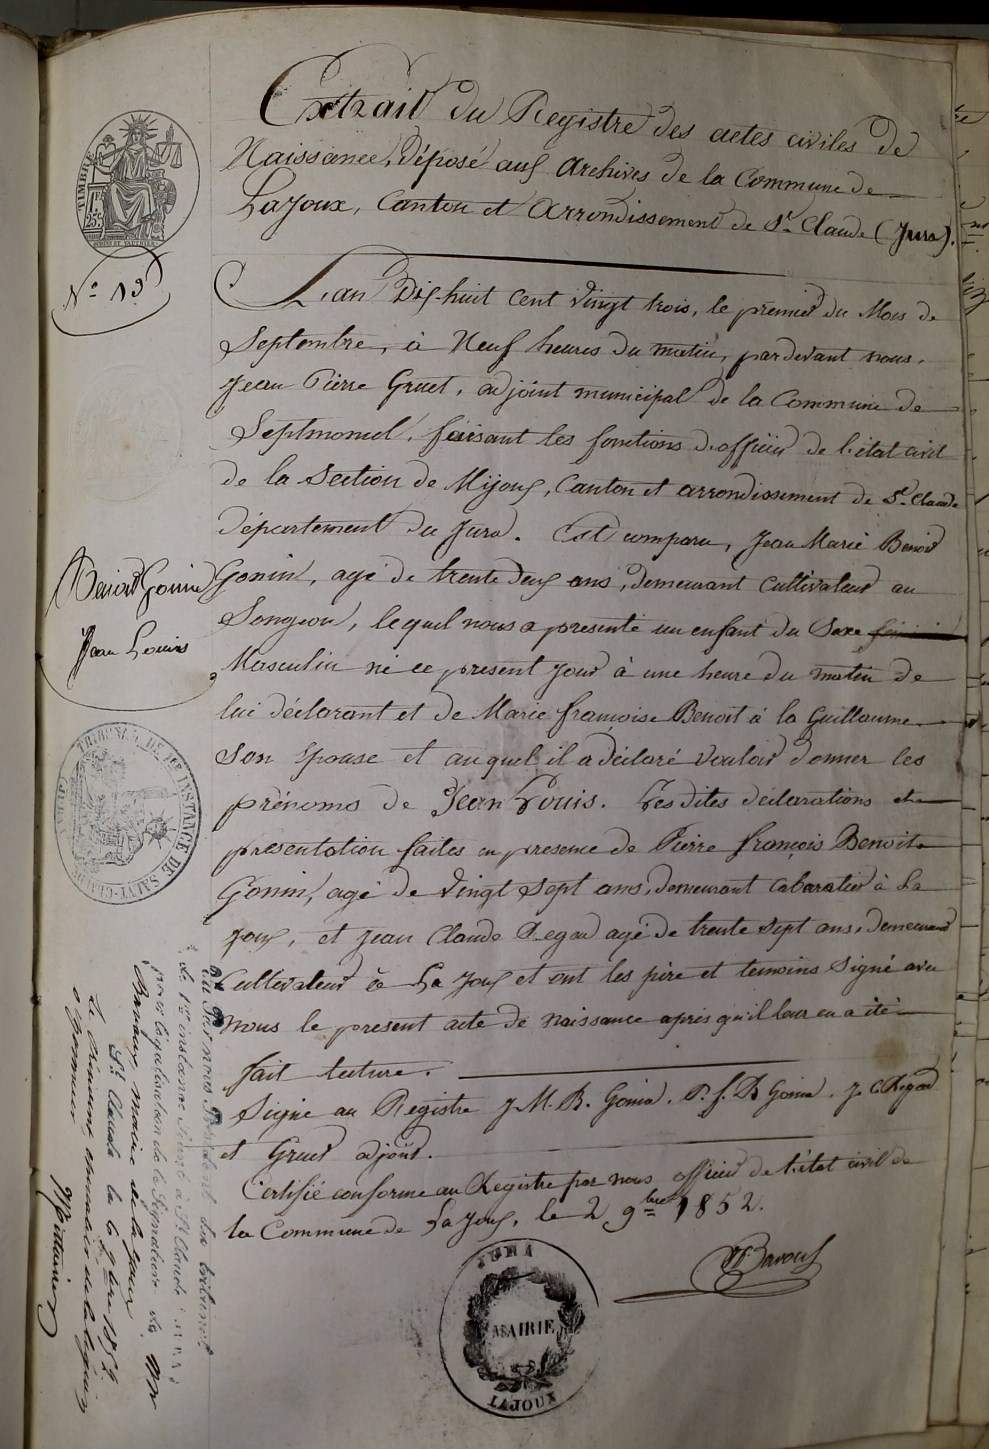 Extrait du Registre des actes civiles de
Naissance, déposé aux archives de la Commune de
Lajoux, Canton et Arrondissement de St. Claude (Jura).
TIMBRE
1F.
25c
No. 13
L'an Dix-huit cent vingt trois, le premier du Mois de
Septembre, à Neuf heures du matin, pardevant nous.
Jean Pierre Gruet, adjoint municipal de la Commune de
Septmoncel, faisant les fonctions d'officier de l'état civil
de la Section de Mijoux, Canton et arrondissement de St. Claude
Département du Jura. Est comparu, Jean Marie Benoit
Gonin, agé de trente deux ans, demeurant cultivateur au
Benoit Gonin
Jean Louis
Songeon, lequel nous a presenté un enfant du Sexe
Masculin né ce present jour à une heure du matin de
lui déclarant et de Marie françoise Benoit à la Guillaume
son épouse et auquel il a déclaré vouloir donner les
prénoms de Jean Louis. Les dites déclarations et
présentation faites en presence de Pierre françois Benoit
Gonin, agé de vingt sept ans, demeurant cabaratier à La
Joux, et Jean Claude Regad agé de trente sept ans, demeurant
Cultivateur à La Joux et ont les père et temoins signé avec
nous le present acte de naissance après qu'il leur en a été
fait lecture.
Signé au Registre J. M. B. Gonin. P. f. B Gonin. J. C. Regad
et Gruet adjoint.
Certifié conforme au Registre par nous officier de l'état civil de
la Commune de La Joux, le 2 9bre 1852.
TRIBUNAL DE 1ERE INSTANCE DE SAINT-CLAUDE
Vu Par nous Président du tribunal
de 1re instance séant à St Claude (Jura)
pour légalisation de la Signature de Mr
maire de la Joux
St. Claude le 6 9bre 1852
JURA
MAIRIE
LAJOUX